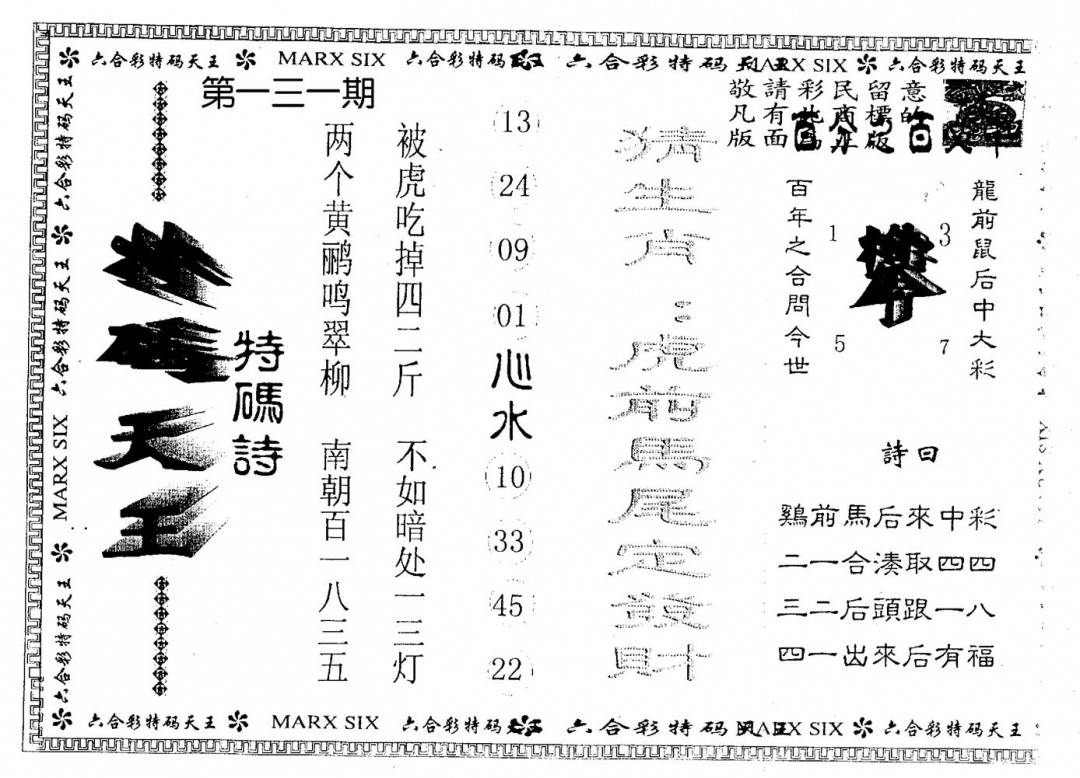 六合彩特码天王 MARX SIX 六合彩特码 六合彩特码天王 MARX SIX 六合彩特码天王
第一三一期
敬請彩民留意
凡有此商標的
版面為正版
龍前鼠后中大彩
攀
1
3
5
7
百年之合問今世
詩曰
鷄前馬后來中彩
二一合湊取四四
三二后頭跟一八
四一出來后有福
猜生肖:
虎前馬尾定發財
13
24
09
01
心水
10
33
45
22
被虎吃掉四二斤 不如暗处一三灯
两个黄鹂鸣翠柳 南朝百一八三五
特碼詩
特碼天王
六合彩特码天王 MARX SIX 六合彩特码天王 六合彩特码天王
六合彩特码天王 MARX SIX 六合彩特码 六合彩特码天王 MARX SIX 六合彩特码天王